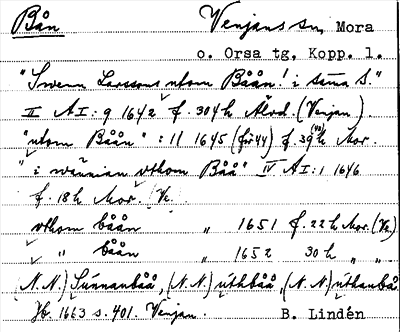 Bån Venjans sn, Mora
o. Orsa tg, Kopp. l.
"Swenn Larssons utom Båån! i sama S."
II A I: 9 1642 f. 304 h Älvd. (Venjan).
"utom Båån": 11 1645 (för 44) f. 39 h Mor.
" i wännian vthom Båå" IV A I: 1 1646
f. 18 h Mor. (Ve.
vthom båån " 1651 f. 22 h Mor. (Ve)
" båån " 1652 30 h " "
(N.N.) Sunnanbåå, (N.N.) úthbåå, (N.N.) úthanbå
Jb. 1663 s. 401. Venjan. B. Lindén